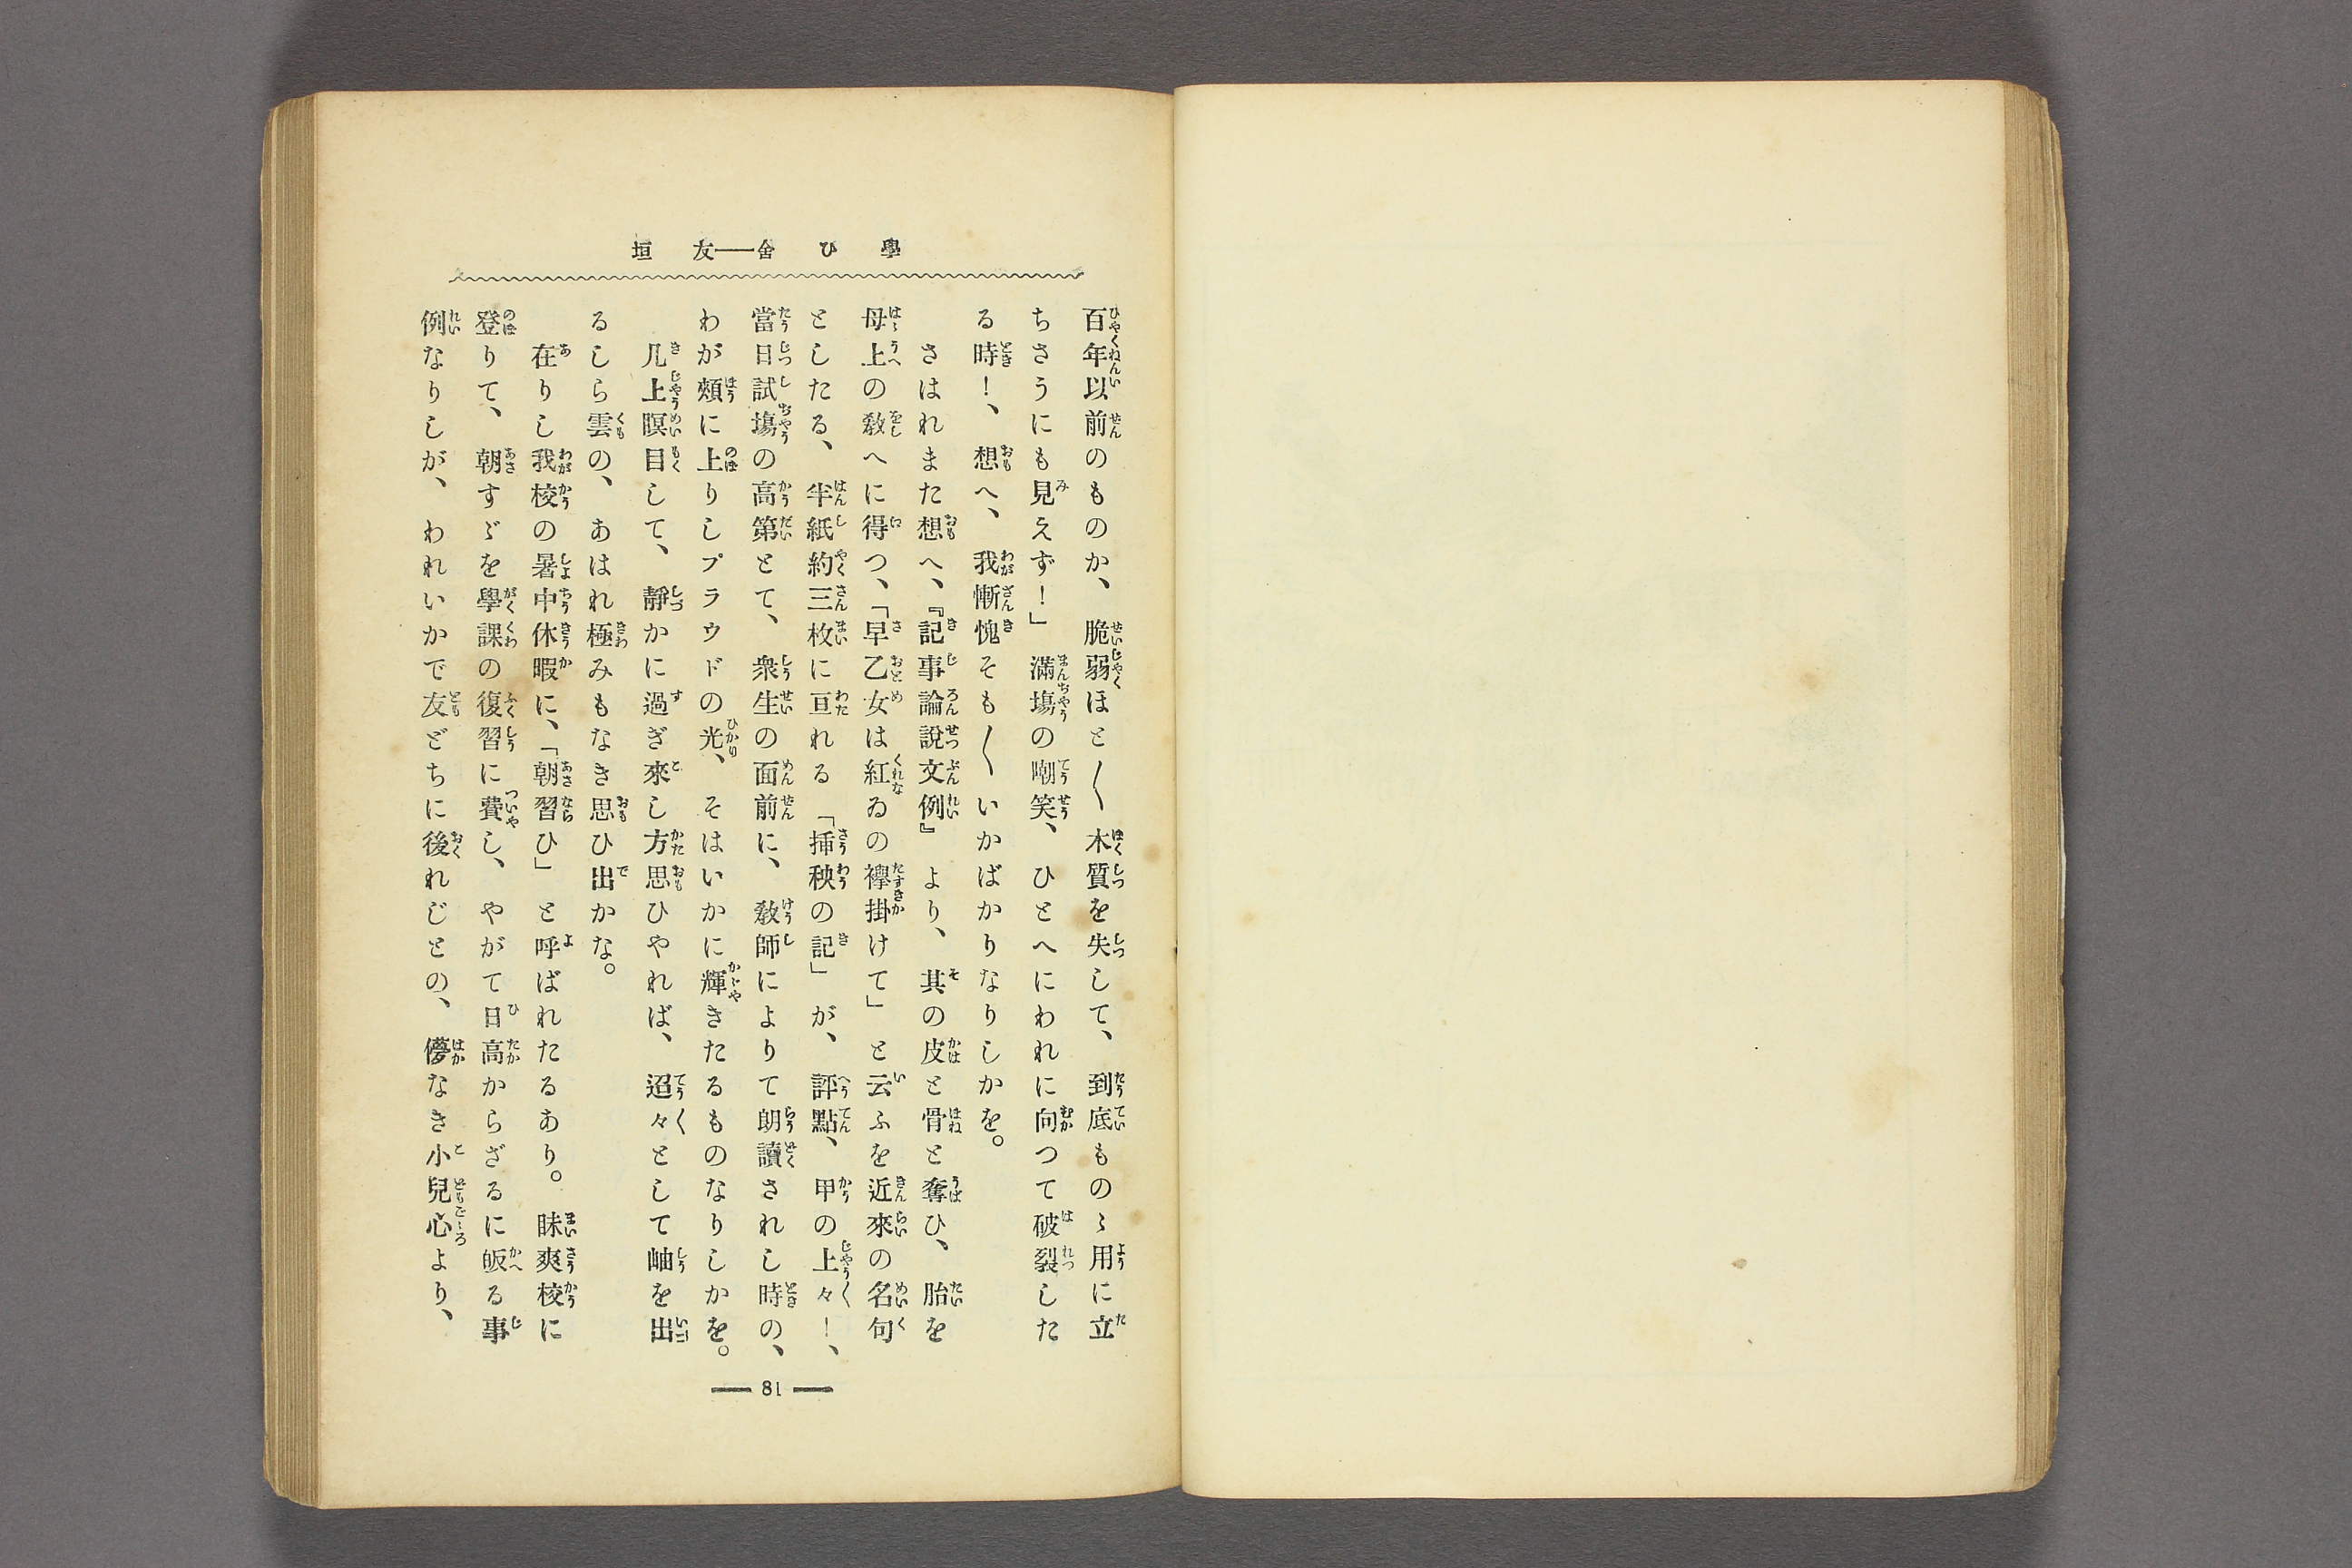 學び舍――友垣
百年以前のものか、脆弱ほと〱木質を失して、到底ものゝ用に立
ちさうにも見えず！」滿塲の嘲笑、ひとへにわれに向つて破裂した
る時！、想へ、我慚愧そも〱いかばかりなりしかを。
さはれまた想へ、『記事論說文例』より、其の皮と骨と奪ひ、胎を
母上の敎へに得つ、「早乙女は紅ゐの襷掛けて」と云ふを近來の名句
としたる、半紙約三枚に亘れる「挿秧の記」が、評點、甲の上々！、
當日試塲の高第とて、衆生の面前に、敎師によりて朗讀されし時の、
わが頰に上りしプラウドの光、そはいかに輝きたるものなりしかを。
几上瞑目して、靜かに過ぎ來し方思ひやれば、迢々として岫を出
るしら雲の、あはれ極みもなき思ひ出かな。
在りし我校の暑中休暇に、「朝習ひ」と呼ばれたるあり。昧爽校に
登りて、朝すゞを學課の復習に費し、やがて日高からざるに皈る事
例なりしが、われいかで友どちに後れじとの、儚なき小兒心より、
81